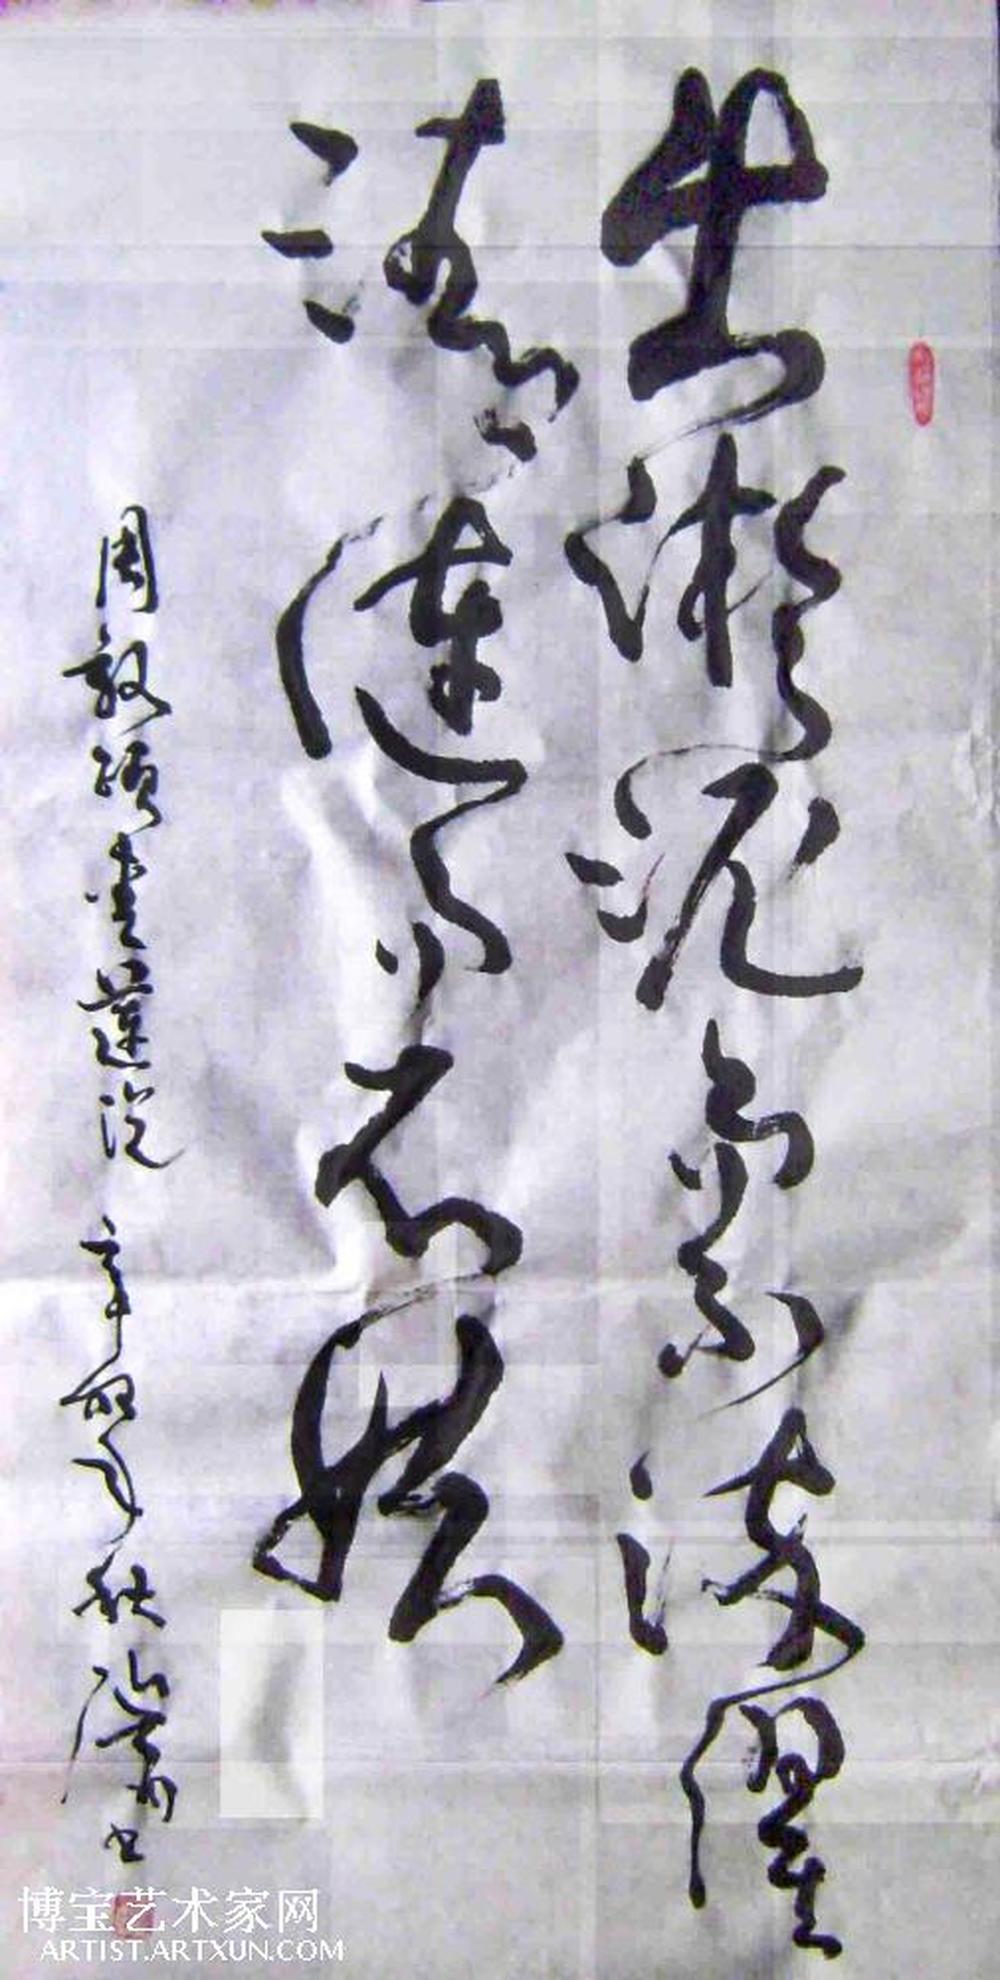 出淤泥而不染濯
清漣而不妖
周敦頤愛蓮说 辛卯年秋 书
博宝艺术家网
ARTIST.ARTXUN.COM